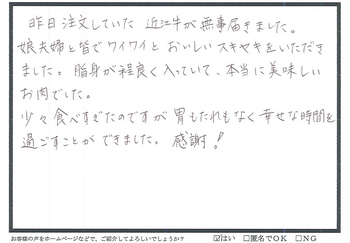 昨日注文していた 近江牛が無事届きました。
娘夫婦と皆でワイワイと おいしいスキヤキをいただき
ました。脂身が程良く入っていて、本当に美味しい
お肉でした。
少々食べすぎたのですが 胃もたれもなく幸せな時間を
過ごすことができました。 感謝！
お客様の声をホームページなどで、ご紹介してよろしいでしょうか？ ☑はい □匿名でOK □NG